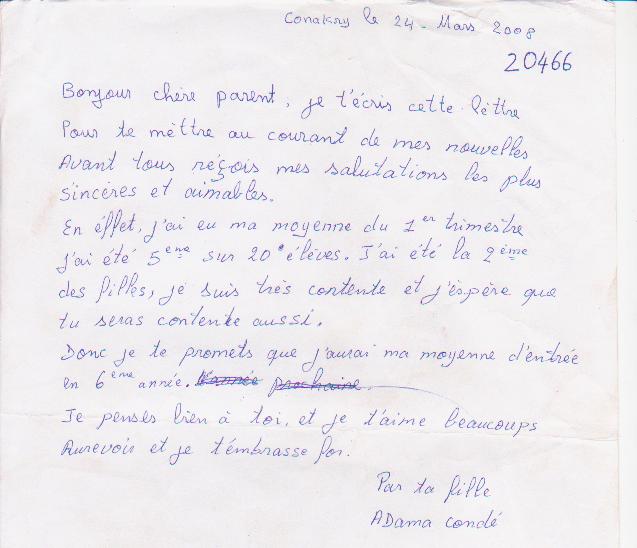 Conakry le 24 - Mars 2008
20466
Bonjour chère parent, je t'écris cette lèttre
Pour te mèttre au courant de mes nouvelles
Avant tous réçois mes salutations les plus
Sincères et aimables.
En éffet, j'ai eu ma moyenne du 1er trimestre
j'ai été 5eme sur 20 élèves. J'ai été la 2ème
des filles, je suis très contente et j'éspère que
tu seras contente aussi.
Donc je te promets que j'aurai ma moyenne d'entrée
en 6eme année. l'année prochaine.
Je penses bien à toi, et je t'aime beaucoups
Aurevoir et je t'émbrasse for.
Par ta fille
ADama condé